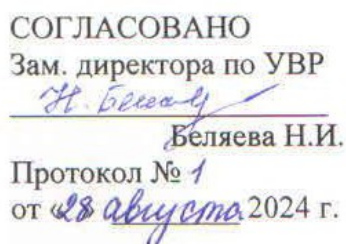 СОГЛАСОВАНО
Зам. директора по УВР
Н. Беляе
Беляева Н.И.
Протокол № 1
от «28» августа 2024 г.